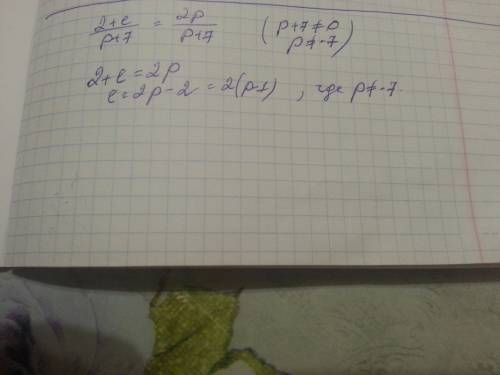 2+c/p+7 = 2p/p+7 (p+7≠0
p≠-7)
2+c=2p
c=2p-2=2(p-1), где p≠-7.